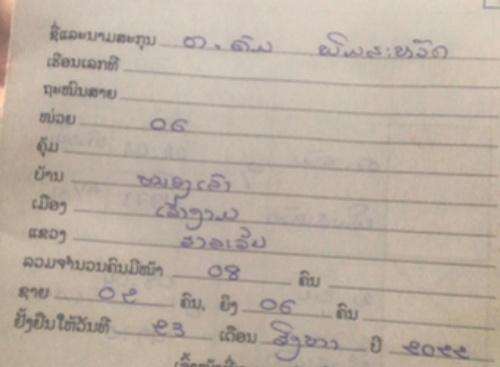 ຊື່ແລະນາມສະກຸນ ທ. ຄຳ
ເຮືອນເລກທີ
ຖະໜົນສາຍ
ໜ່ວຍ 06
ຄຸ້ມ
ບ້ານ ໜອງເຂົາ
ເມືອງ ເລົ່າງາມ
ແຂວງ ສາລະວັນ
ລວມຈຳນວນຄົນມີໜ້າ 08 ຄົນ
ຊາຍ 0໒ ຄົນ, ຍິງ 06 ຄົນ
ຢັ້ງຢືນໃຫ້ວັນທີ ໒໓ ເດືອນ ສິງຫາ ປີ ໒໐໒໒